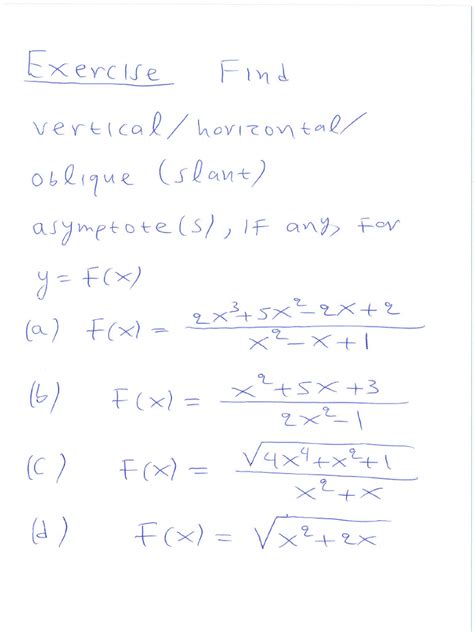 Exercise Find
vertical/horizontal/
oblique (slant)
asymptote(s), if any, for
y = F(x)
(a) F(x) = (2x³+5x²-2x+2)/(x²-x+1)
(b) F(x) = (x²+5x+3)/(2x²-1)
(c) F(x) = √(4x⁴+x²+1)/(x²+x)
(d) F(x) = √(x²+2x)